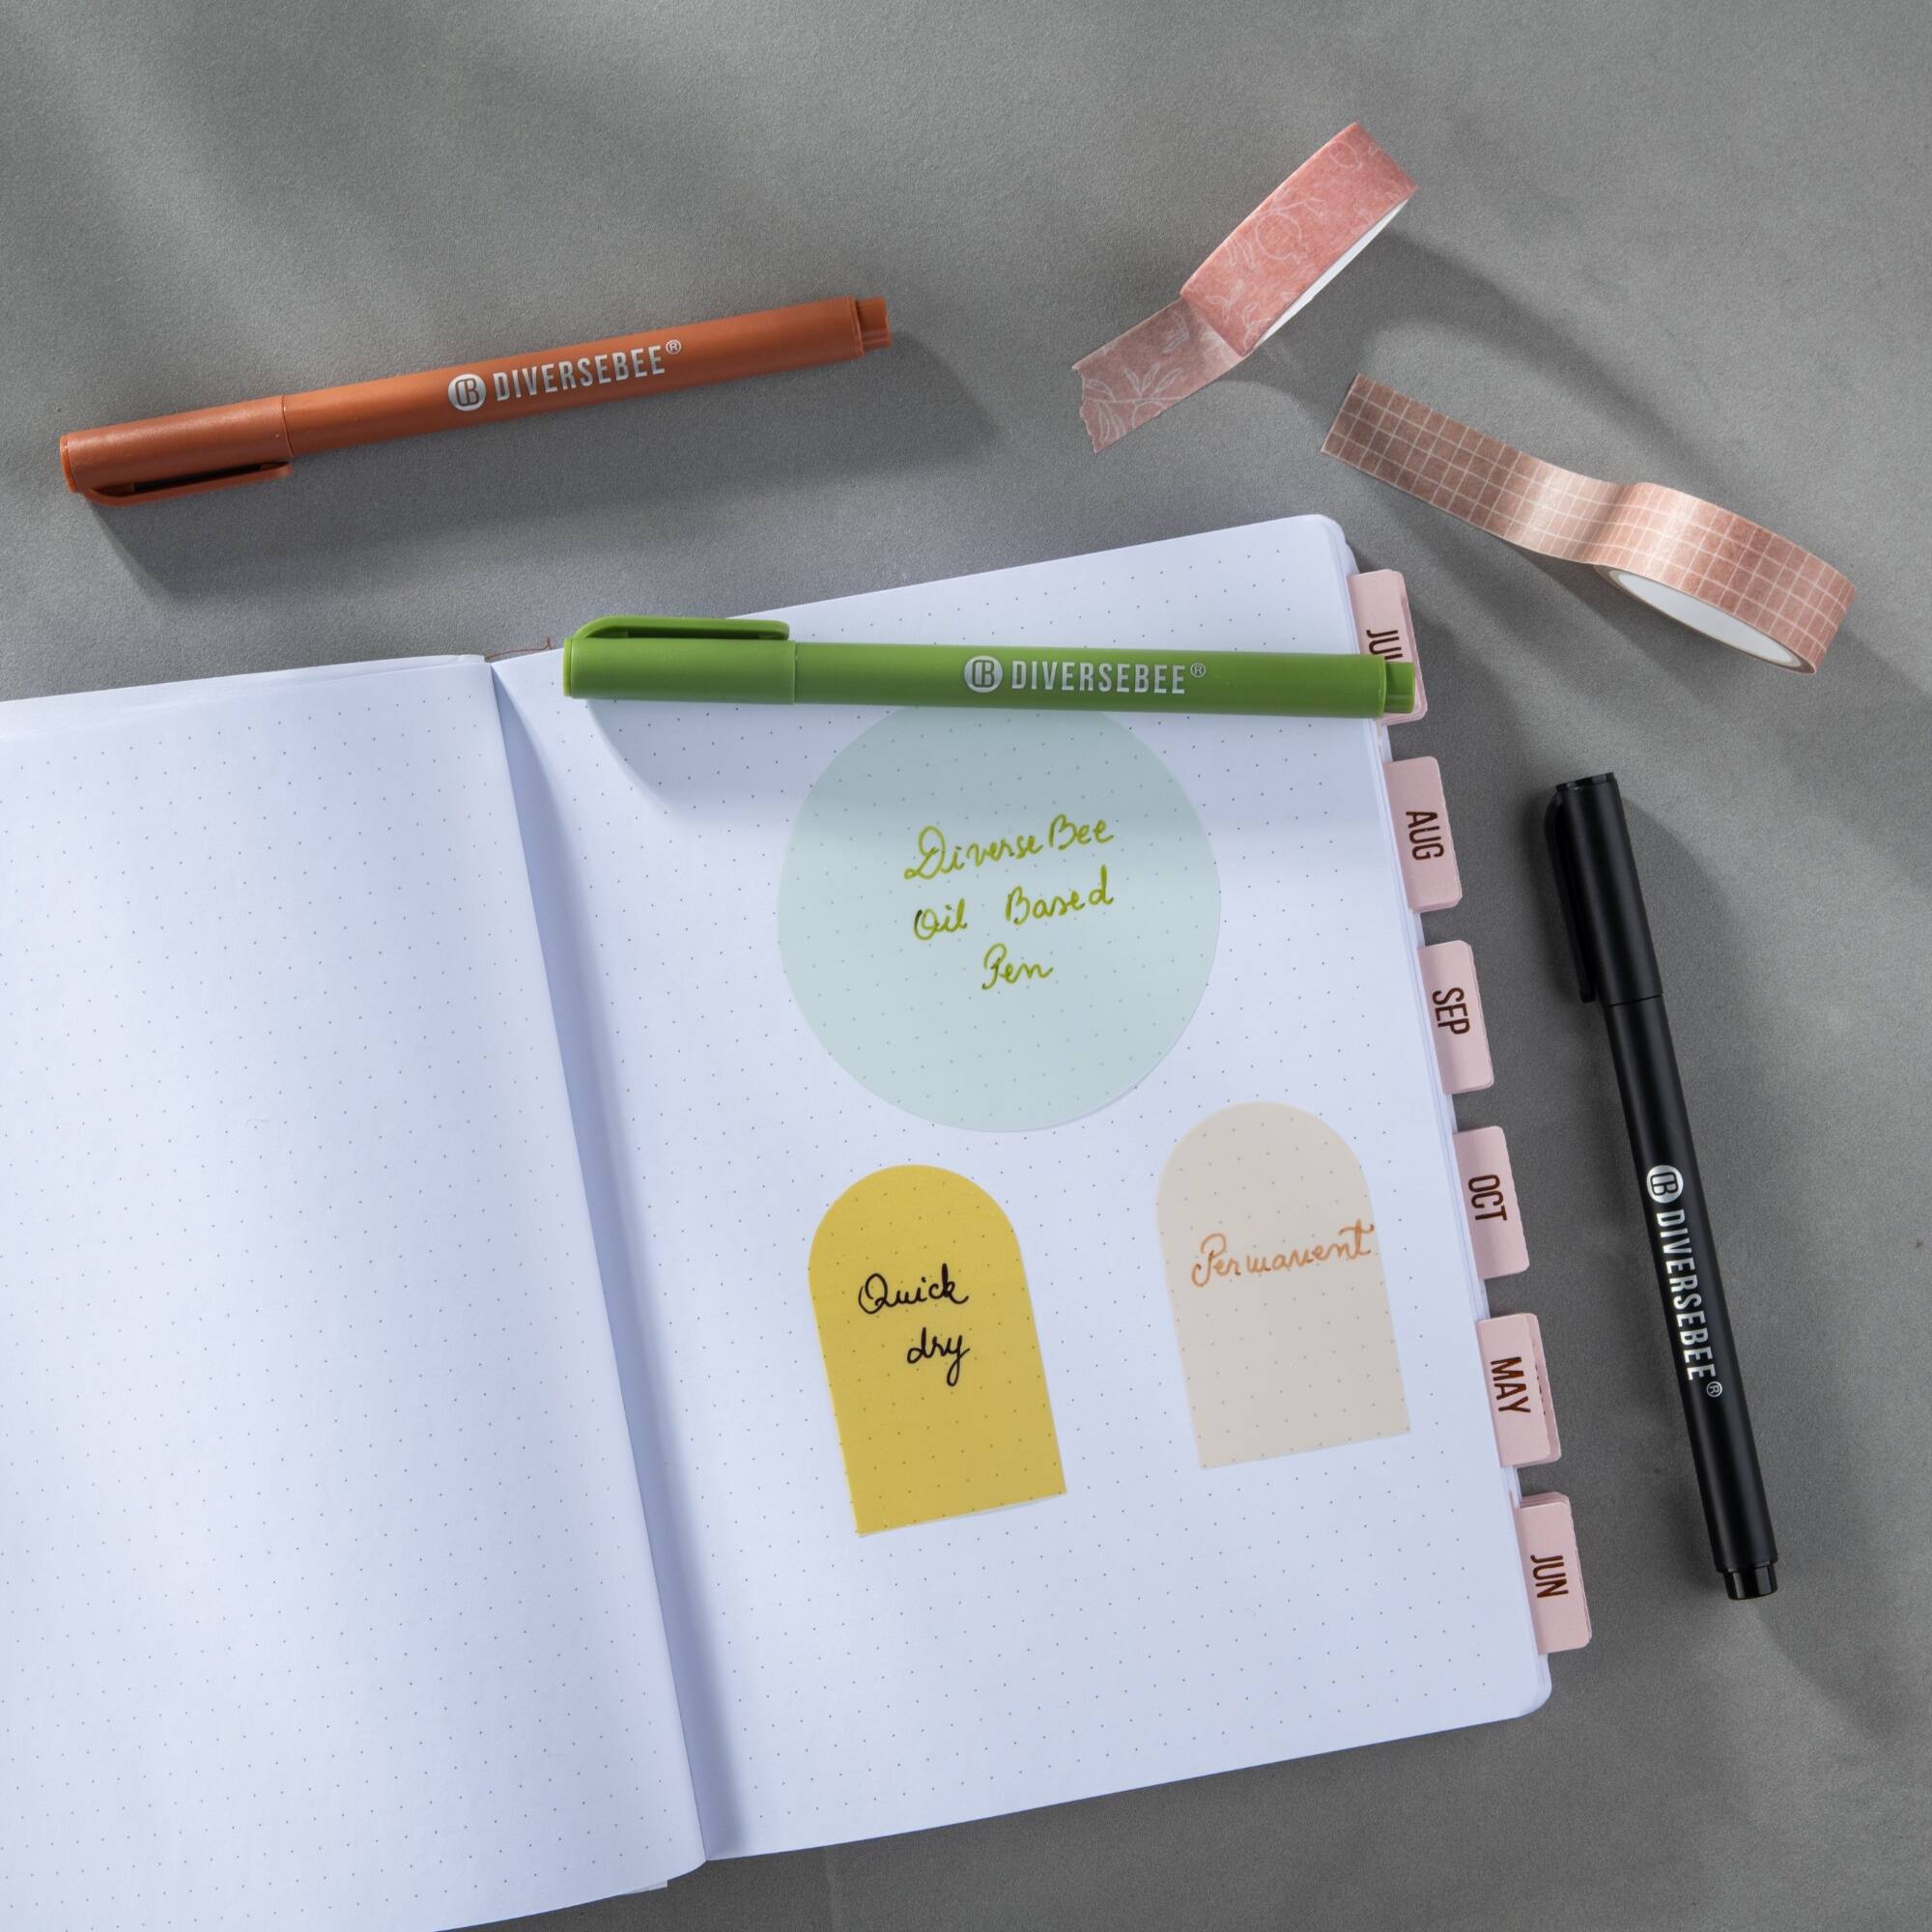 DIVERSEBEE®
DIVERSEBEE®
DiverseBee
Oil Based
Pen
Quick
dry
Permanent
AUG
SEP
OCT
MAY
JUN
DIVERSEBEE®